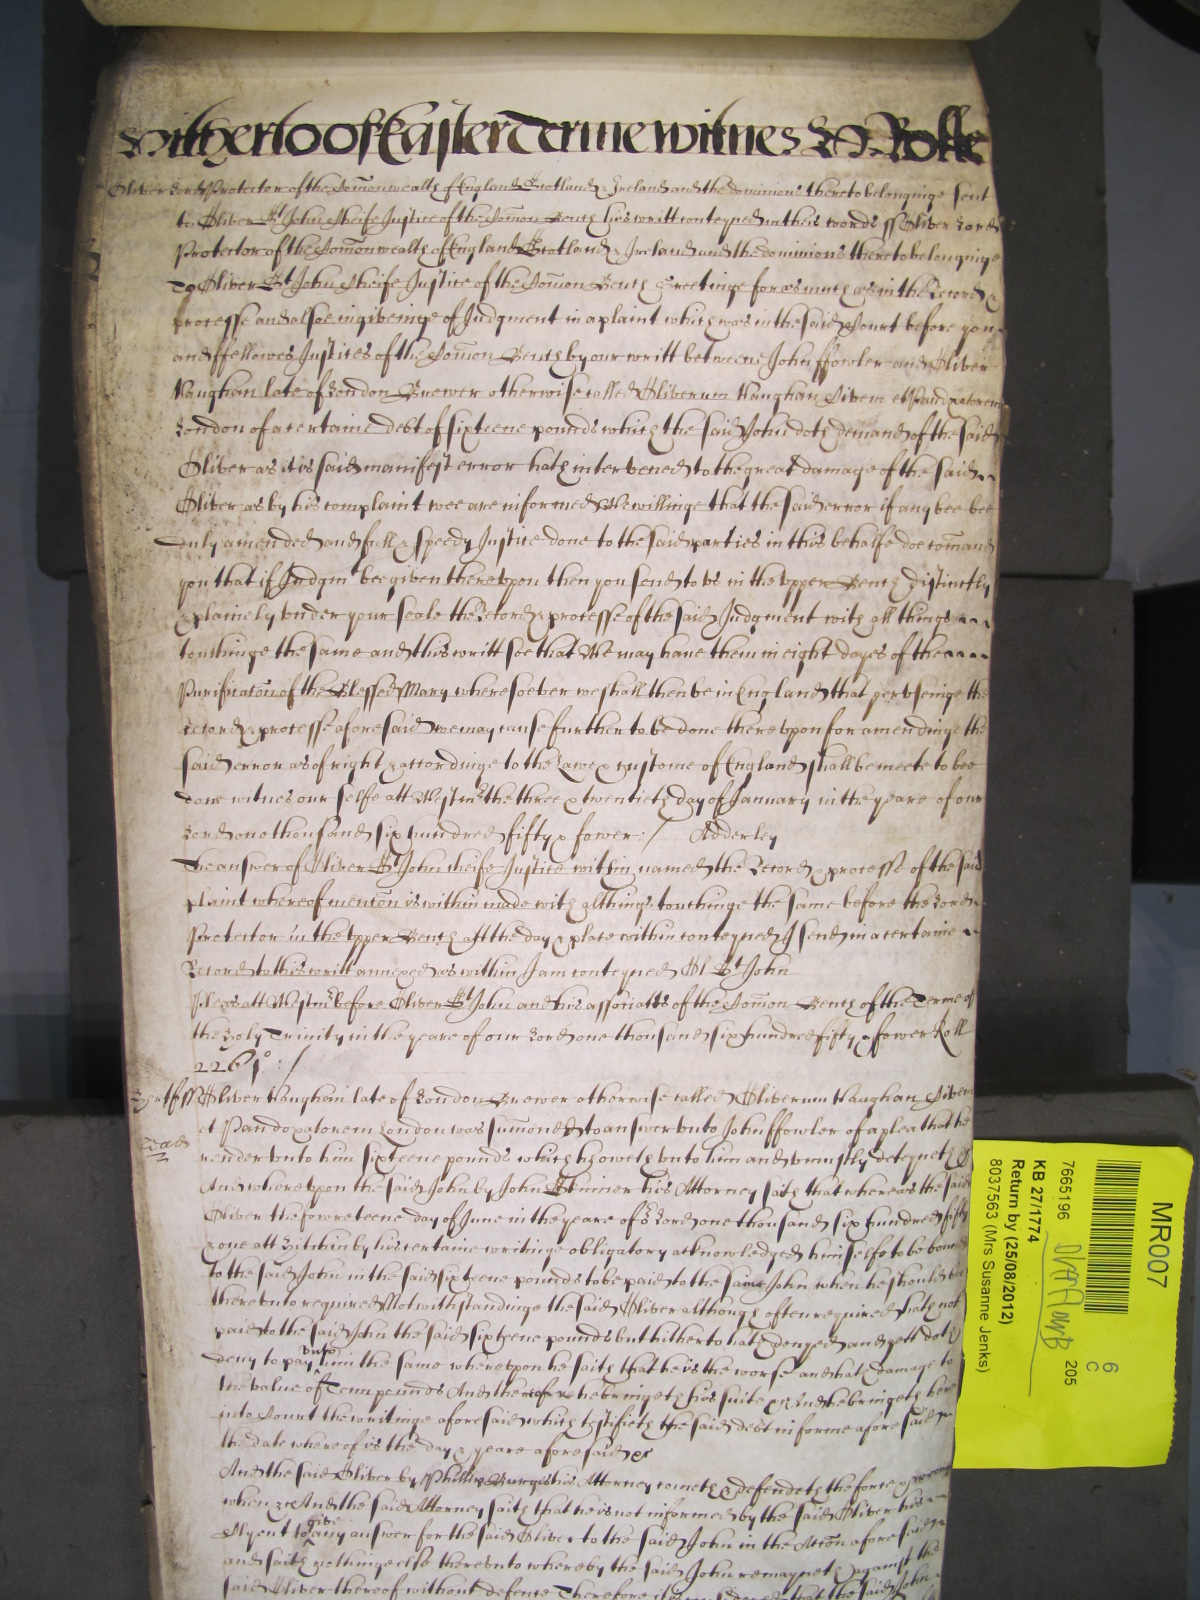 Hitherto of Easter Terme witnes H Rolle
Oliver Lord Protector of the Comonwealth of England Scotland & Ireland and the dominions thereto belonginge sent
to Oliver St John Cheife Justice of the Comon Bench his writt conteyned in theis words ss Oliver Lord
Protector of the Comonwealth of England Scotland & Ireland and the dominions thereto belonginge
To Oliver St John Cheife Justice of the Comon Bench Greetinge for as much as in the Record &
processe and alsoe in giveinge of Judgment in a plaint which was in the said Court before you
and ffellowes Justices of the Comon Bench by our writt betweene John ffowler and Oliver
Vaughan late of London Brewer otherwise called Oliverum Vaughan Civem et Pandoxatorem
London of a certaine debt of sixteene pounds which the said John doth demand of the said
Oliver as it is said manifest error hath intervened to the great damage of the said
Oliver as by his complaint wee are informed We willinge that the said error if any bee bee
duly amended and full & speedy Justice done to the said parties in this behalfe doe comand
you that if Judgmt bee given thereupon then you send to us in the upper Bench distinctly
& plainely under your seale the Record & processe of the said Judgment with all things
touchinge the same and this writt soe that We may have them in eight dayes of the
Purificaton of the Blessed Mary wheresoever we shall then be in England that peruseinge the
record & processe aforesaid we may cause further to be done thereupon for amendinge the
said error as of right & accordinge to the Lawe & custome of England shall be meete to bee
done witnes our selfe att Westmr the three & twentieth day of January in the yeare of our
Lord one thousand six hundred fifty & fower :/ Adderley
The answer of Oliver St John cheife Justice within named the Record & processe of the said
plaint whereof mencon is within made with all things touchinge the same before the Lord
Protector in the upper Bench att the day & place within conteyned I send in a certaine
Record to this writt annexed as within I am conteyned Ol St John
Pleas att Westmr before Oliver St John and his associatts of the Comon Bench of the Terme of
the Holy Trinity in the yeare of our Lord one thousand six hundred fifty & fower Roll
2261o :/
Hertf ss Oliver Vaughan late of London Brewer otherwise called Oliverum Vaughan Civem
et Pandoxatorem London was sumoned to answer unto John ffowler of a plea that he
render unto him sixteene pounds which he oweth unto him and unjustly deteyneth &c
And whereupon the said John by John Skinner his Attorney saith that whereas the said
Oliver the fowreteene day of June in the yeare of or Lord one thousand six hundred fifty
& one att Hitchin by his certaine writinge obligatory acknowledged himselfe to be bound
to the said John in the said sixteene pounds to be paid to the same John when he should be
thereunto required Notwithstandinge the said Oliver although often required hath not
paid to the said John the said sixteene pounds but hitherto hath denyed and yett doth
deny to pay unto him the same whereupon he saith that he is the worse and hath damage to
the value of Tenn pounds And therefore he bringeth his suite &c And he bringeth here
into Court the writinge aforesaid which testifieth the said debt in forme aforesaid
the date whereof is the day & yeare aforesaid &c
And the said Oliver by Phillip Burgis his Attorney cometh & defendeth the force &
when &c And the said Attorney saith that he is not informed by the said Oliver his
Clyent to give any answer for the said Oliver to the said John in the Accon aforesaid
and saith nothinge else thereunto whereby the said John remayneth against the
said Oliver thereof without defence Therefore it is considered that the said John
MR007
6
C
205
7665196
KB 27/1774
Return by (25/08/2012)
8037563 (Mrs Susanne Jenks)